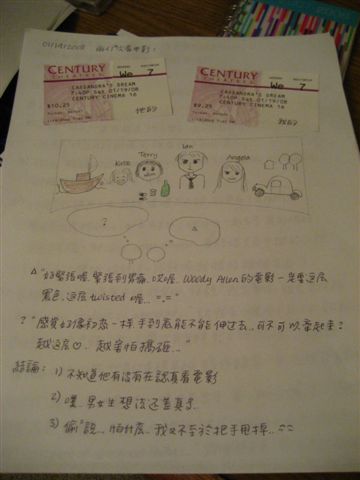 01/19/2008
CENTURY
THEATRES
We
7
CASSANDRA'S DREAM
7:40P Sat 01/19/08
CENTURY CINEMA 16
$10.25
他的
CENTURY
THEATRES
We
7
CASSANDRA'S DREAM
7:40P Sat 01/19/08
CENTURY CINEMA 16
$9.25
我的
Kate
Terry
Ian
Angela
?
△
△ "好緊張喔, 緊張到胃痛, 哎喔, Woody Allen 的電影一定要這麼
黑色, 這麼 twisted 喔... =.="
? "感覺好像初戀一樣, 手到底能不能伸過去, 可不可以牽起來?
越這麼♡, 越害怕搞砸..."
結論: 1) 不知道他有沒有在認真看電影
2) 噗, 男女生想法還差真多
3) 偷偷說... 怕什麼, 我又不至於把手甩掉